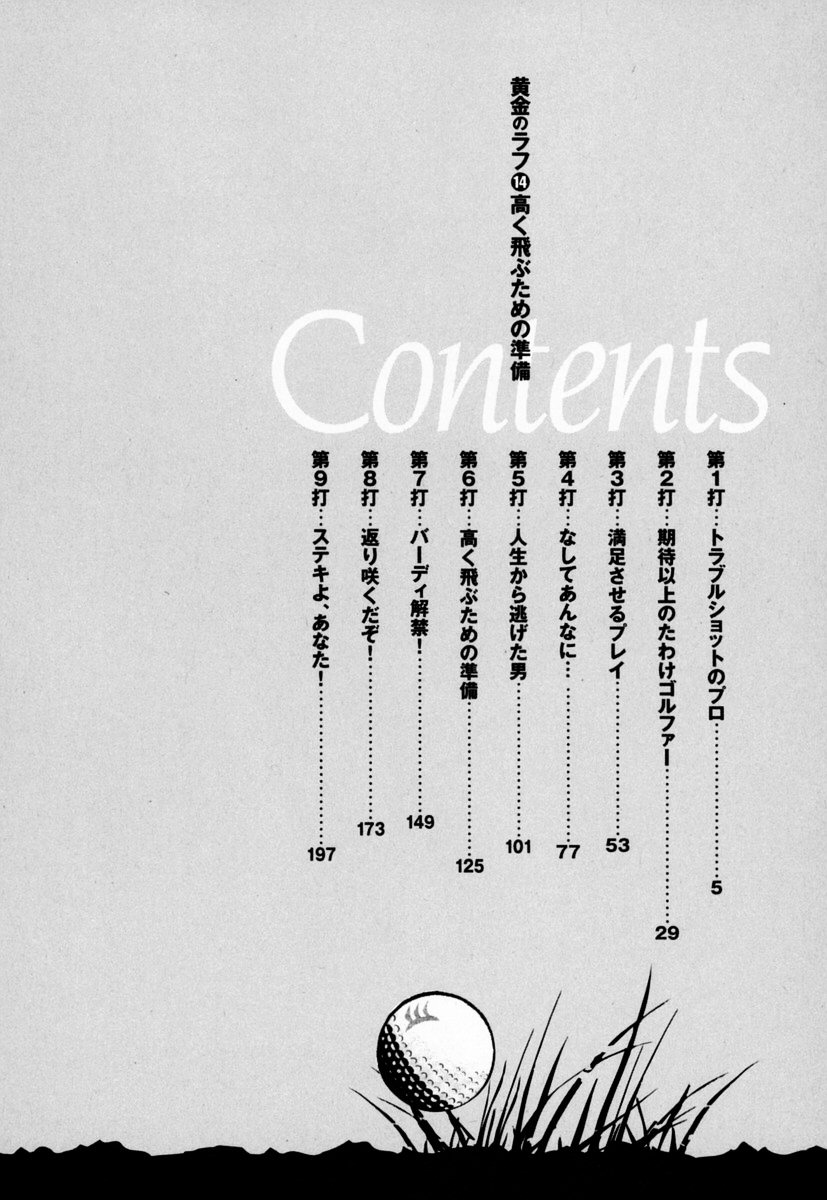 黄金のラフ⓮高く飛ぶための準備
Contents
第1打…トラブルショットのプロ………………5
第2打…期待以上のたわけゴルファー………………29
第3打…満足させるプレイ………………53
第4打…なしてあんなに…………………77
第5打…人生から逃げた男………………101
第6打…高く飛ぶための準備………………125
第7打…バーディ解禁!………………149
第8打…返り咲くだぞ!………………173
第9打…ステキよ、あなた!………………197